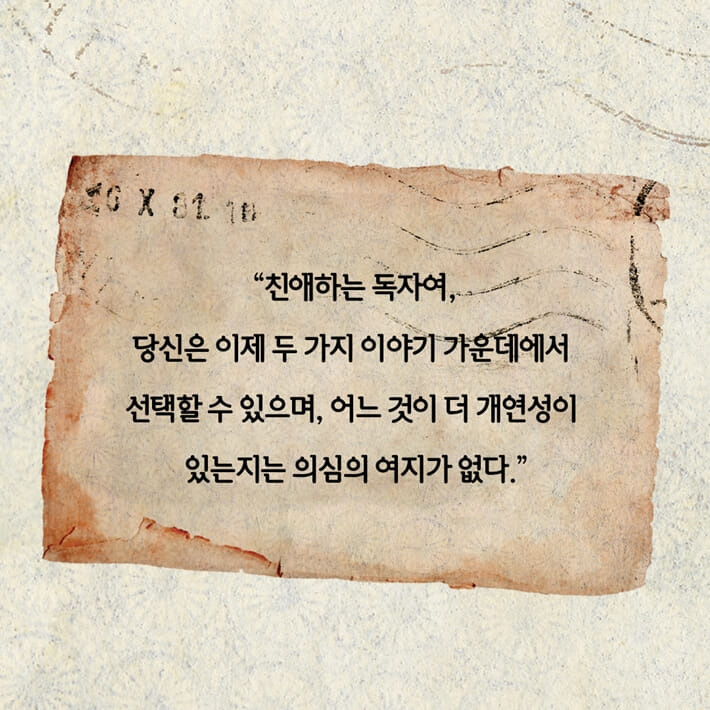 “친애하는 독자여,
당신은 이제 두 가지 이야기 가운데에서
선택할 수 있으며, 어느 것이 더 개연성이
있는지는 의심의 여지가 없다.”